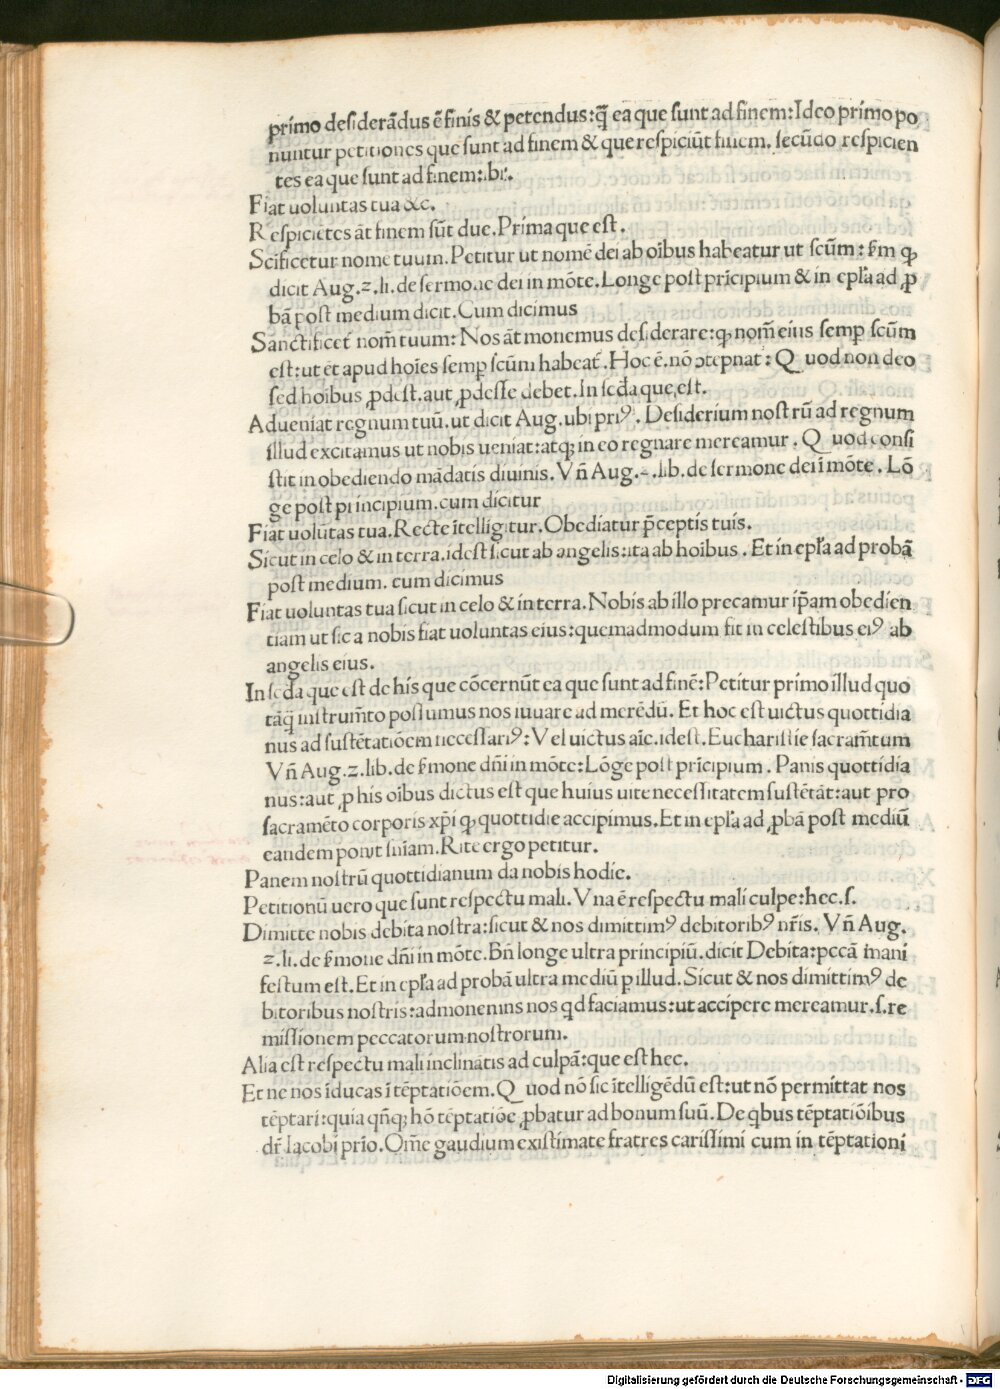 primo desiderādus ē finis & petendus:q̄ ea que sunt ad finem:Ideo primo po
nuntur petitiones que sunt ad finem & que respiciūt finem. secūdo respicien
tes ea que sunt ad finem:ibi.
Fiat uoluntas tua &c.
Respiciētes āt finem sūt due.Prima que est.
Scificetur nome tuum.Petitur ut nomē dei ab oībus habeatur ut scūm: s̄m ꝙ
dicit Aug.2.li.de sermone dei in mōte.Longe post prīcipium & in epl̄a ad ꝓ
bā post medium dicit.Cum dicimus
Sanctificet̄ nom̄ tuum: Nos āt monemus desiderare:ꝙ nom̄ eius semp scūm
est:ut et apud hoīes semp scūm habeat̄. Hoc ē.nō ↄtēpnat̄: Q uod non deo
sed hoībus ꝓdest.aut ꝓdesse debet.In scd̄a que est.
Adueniat regnum tuū.ut dicit Aug.ubi priꝰ. Desiderium nostrū ad regnum
illud excitamus ut nobis ueniat:atqꝫ in eo regnare mereamur. Q uod consi
stit in obediendo mādatis diuinis. Vn̄ Aug.2.lib.de sermone dei ī mōte. Lō
ge post principium.cum dicitur
Fiat uolūtas tua.Recte ītelligitur.Obediatur p̄ceptis tuis.
Sicut in celo & in terra.idest sicut ab angelis:ita ab hoībus. Et in epl̄a ad probā
post medium. cum dicimus
Fiat uoluntas tua sicut in celo & in terra. Nobis ab illo precamur ip̄am obedien
tiam ut sic a nobis fiat uoluntas eius:quemadmodum fit in celestibus eiꝰ ab
angelis eius.
In scd̄a que est de his que cōcernūt ea que sunt ad finē: Petitur primo illud quo
tāq̄ instrum̄to possumus nos iuuare ad merēdū. Et hoc est uictus quottidia
nus ad sustētatiōem necessariꝰ: Vel uictus aīe.idest.Eucharistie sacram̄tum
Vn̄ Aug.2.lib.de s̄mone dn̄i in mōte:Lōge post prīcipium. Panis quottidia
nus:aut ꝓ his oībus dictus est que huius uite necessitatem sustētāt:aut pro
sacramēto corporis xp̄i ꝙ quottidie accipimus.Et in epl̄a ad ꝓbā post mediū
eandem ponit sn̄iam.Rite ergo petitur.
Panem nostrū quottidianum da nobis hodie.
Petitionū uero que sunt respectu mali. Vna ē respectu mali culpe:hec.s.
Dimitte nobis debita nostra:sicut & nos dimittimꝰ debitoribꝰ nr̄is. Vn̄ Aug.
2.li.de s̄mone dn̄i in mōte.Bn̄ longe ultra principiū.dicit Debita:peccā mani
festum est.Et in epl̄a ad probā ultra mediū p illud. Sicut & nos dimittimꝰ de
bitoribus nostris:admonemns nos qd faciamus:ut accipere mereamur.s.re
missionem peccatorum nostrorum.
Alia est respectu mali inclinātis ad culpā:que est hec.
Et ne nos īducas ī tēptatiōem.Q uod nō sic ītelligēdū est:ut nō permittat nos
tēptari:quia qn̄qꝫ hō tēptatiōe ꝓbatur ad bonum suū. De qbus tēptatiōibus
dr̄ Iacobi prīo. Om̄e gaudium existimate fratres carissimi cum in tēptationi
Digitalisierung gefördert durch die Deutsche Forschungsgemeinschaft - DFG